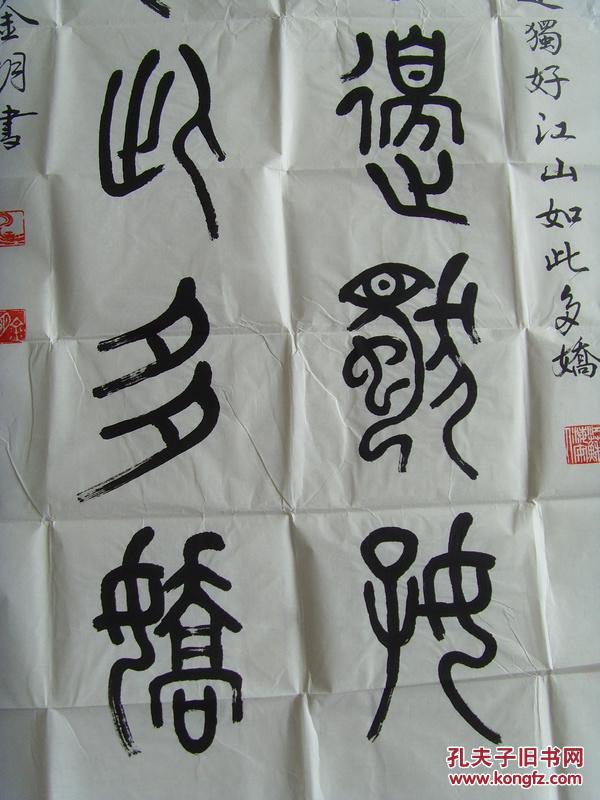 獨好江山如此多嬌
邊獨好
此多嬌
金明書
孔夫子旧书网
www.kongfz.com